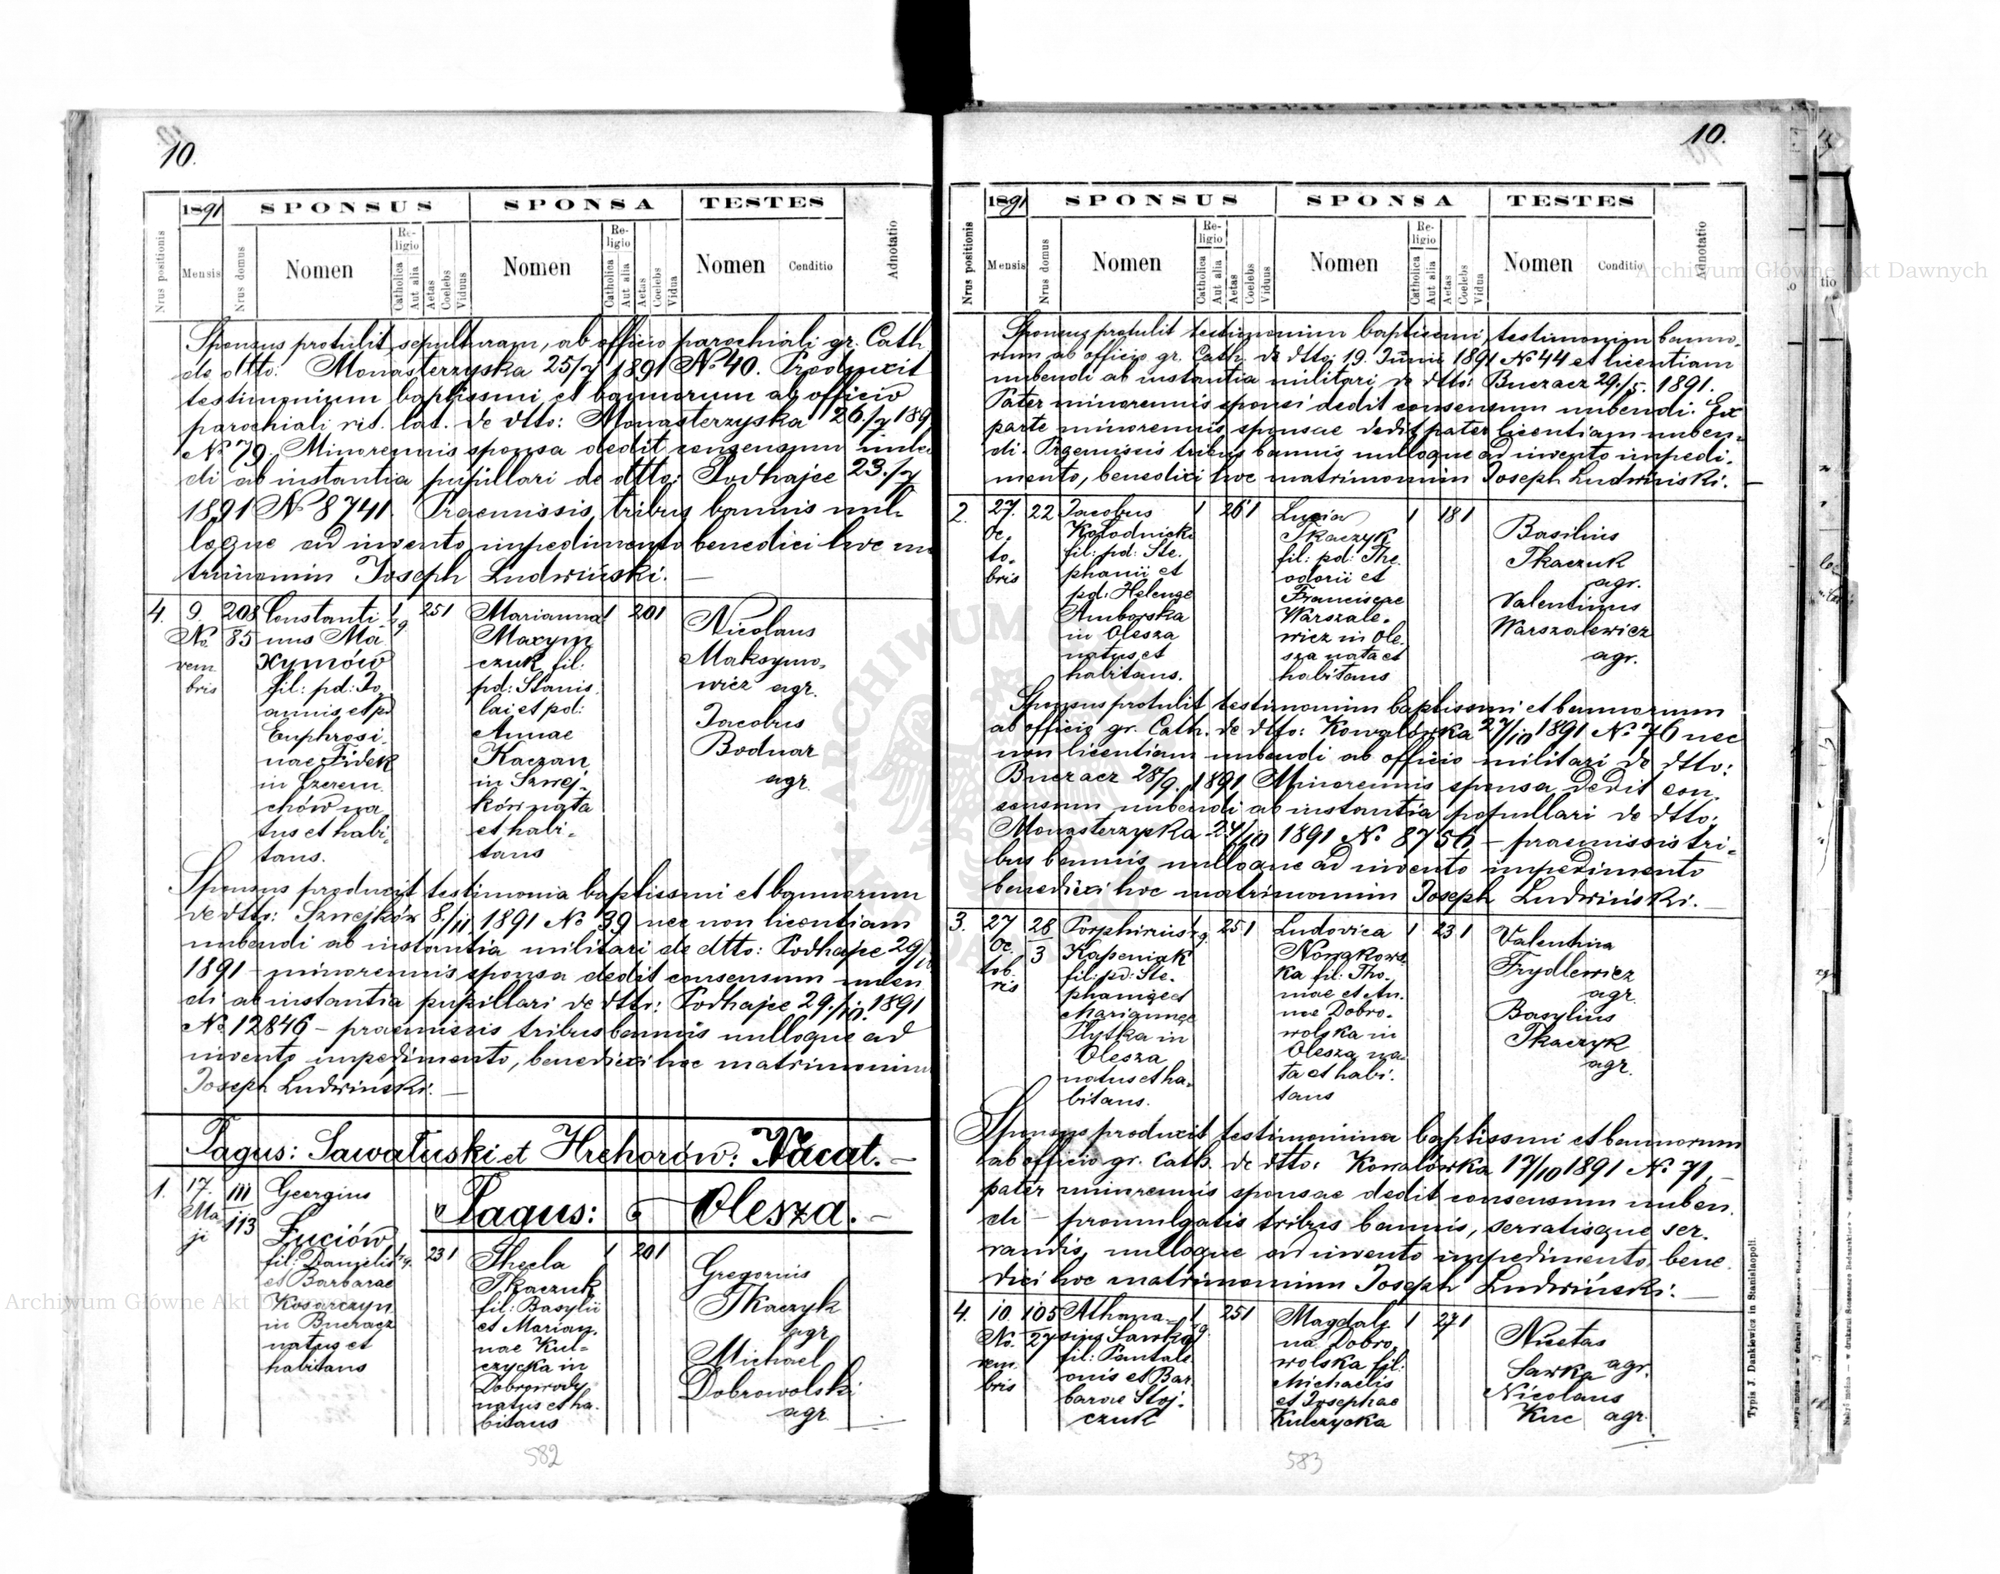 10.
1891
SPONSUS
SPONSA
TESTES
Nrus positionis
Mensis
Nrus domus
Nomen
Religio
Catholica
Aut alia
Aetas
Coelebs
Viduus
Nomen
Religio
Catholica
Aut alia
Aetas
Coelebs
Vidua
Nomen
Conditio
Adnotatio
Sponsus protulit sepulturam, ab officio parochiali gr. Cath
de dtto: Monasterzyska 25/7 1891 No 40. Produxit
testimonium baptissmi et bannorum ab officio
parochiali rit. lat. de dtto: Monasterzyska 26/7 189
No 79. Minorennis sponsa dedit consensum nuben
di ab instantia pupillari de dtto: Podhajce 23/7
1891 No 8741. Praemissis tribus bannis nul-
loque ad invento impedimento benedici hoc m
trimonim Joseph Ludwiński. —
4. 9. No vem bris
208
85
Constanti-
nus Ma
xymów
fil: pd: Jo
annis et pd
Euphrosi.
nae Fidek
in Czerem.
chów na
tus et habi.
tans.
1 g
25 1
Marianna
Maxym
czuk fil:
pd: Stanis.
lai et pd:
Annae
Kaczan
in Sznej.
ków nata
et habi-
tans
1
20 1
Nicolaus
Maksymo.
wicz agr.
Jacobus
Bodnar
agr.
Sponsus producxit testimonia baptissmi et bannorum
de dtto: Sznejków 8/11 1891 No 39 nec non licentiam
nubendi ab instantia militari de dtto: Podhajce 29/10
1891 – minorennis sponsa dedit consensum nuben
di ab instantia pupillari de dtto: Podhajce 29/10. 1891
No 12846 – praemissis tribus bannis nulloque ad
invento impedimento, benedixi hoc matrimonium
Joseph Ludwiński. —
Pagus: Sawałuski et Hrehorów: Vacat. —
Pagus: Olesza. —
1. 17. Ma ji
111
113
Georgius
Łuciów
fil: Danielis
et Barbarae
Kosarczyn
in Buczacz
natus et
habitans
1 g.
23 1
Thecla
Tkaczuk
fil: Basylii
et Marian.
nae Kul-
czycka in
Dobrowody
natus et ha.
bitans
1
20 1
Gregorius
Tkaczyk
agr
Michael
Dobrowolski
agr
582
10.
1891
SPONSUS
SPONSA
TESTES
Nrus positionis
Mensis
Nrus domus
Nomen
Religio
Catholica
Aut alia
Aetas
Coelebs
Viduus
Nomen
Religio
Catholica
Aut alia
Aetas
Coelebs
Vidua
Nomen
Conditio
Adnotatio
Sponsus protulit testimonium baptissmi, testimonium banno.
rum ab officio gr. Cath. de dtto: 19. Junii 1891 No 44 et licentiam
nubendi ab instantia militari de dtto: Buczacz 29./5. 1891.
Pater minorennis sponsi dedit consensum nubendi. Ex
parte minorennis sponsae dedit pater licentiam nuben-
di. Praemissis tribus bannis nulloque ad invento impedi.
mento, benedixi hoc matrimonium Joseph Ludwiński. —
2. 27. Oc. to. bris
22
Jacobus
Kołodnicki
fil: pd: Ste.
phanii et
pd: Helenae
Amborska
in Olesza
natus et
habitans.
1
26 1
Lucia
Tkaczyk
fil: pd: The.
odorii et
Franciscae
Warszale.
wicz in Ole
sza nata et
habitans
1
18 1
Basilius
Tkaczuk
agr.
Valentinus
Warszalewicz
agr.
Sponsus protulit testimonium baptissmi et bannorum
ab officio gr. Cath. de dtto: Kowalówka 27/10 1891 No 76 nec
non licentiam nubendi ab officio militari de dtto:
Buczacz 28/9. 1891 Minorennis sponsa dedit con.
sensum nubendi ab instantia pupullari de dtto:
Monasterzyska 27/10 1891 No 8756 – praemissis tri-
bus bannis nulloque ad invento impedimento
benedixi hoc matrimonium Joseph Ludwiński. —
3. 27 Oc. tob. ris
28
3
Porphirius
Kapeniak
fil: pd: Ste.
phani et
Mariannae
Plytka in
Olesza
natus et ha.
bitans.
1 g.
25 1
Ludovica
Nowakows
ka fil: Tho.
mae et An.
nae Dobro.
wolska in
Olesza na.
ta et habi.
tans
1
23 1
Valentina
Frydlewicz
agr.
Basylius
Tkaczyk
agr.
Sponsus produxit testimonina baptissmi et bannorum
ab officio gr. Cath. de dtto: Kowalówka 17/10 1891 No 71, –
pater minorennis sponsae dedit consensum nuben.
di – promulgatis tribus bannis, servatisque ser.
vandis, nulloque ad invento impedimento bene.
dici hoc matrimonium Joseph Ludwiński. —
4. 10. No. vem bris
105
27
Athana-
sius Sawka
fil: Pantale
onis et Bar
barae Stoj.
czuk
1 g.
25 1
Magdale
na Dobro
wolska fil:
Michaelis
et Josephae
Kulczycka
1
27 1
Nicetas
Sawka agr.
Nicolaus
Kuc agr.
583
Typis J. Dankiewicz in Stanislaopoli.
Archiwum Główne Akt Dawnych
Archiwum Główne Akt Dawnych